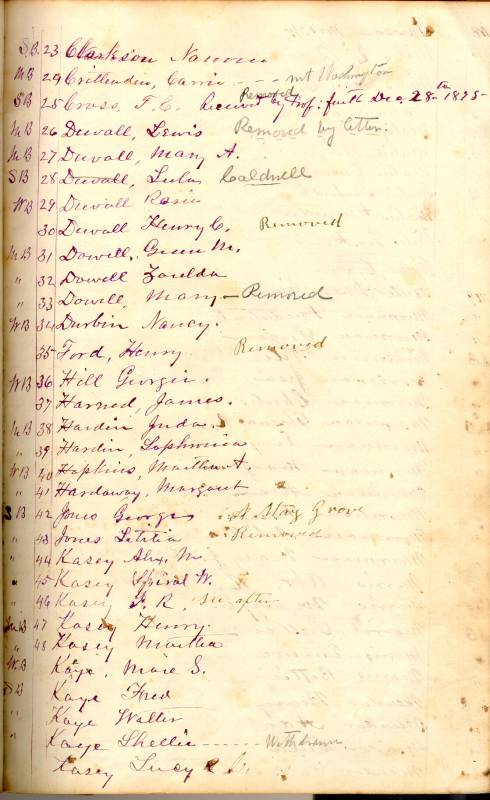 S.B. 23 Clarkson Nannie
M B 29 Crittenden, Carrie - - - mt Washington
S B 25 Cross, T. C. Removed Received by Prof: faith Dec. 28th 1895-
M B 26 Duvall, Lewis Removed by letter.
M B 27 Duvall, Mary A.
S B 28 Duvall, Lula Caldwell
W B 29 Duvall Rosie
30 Duvall Henry C. Removed
M B 31 Dowell, Green M.
" 32 Dowell Zorelda
" 33 Dowell, Mary - Removed
W B 34 Durbin Nancy.
35 Ford, Henry Removed
W B 36 Hill Georgie.
37 Harned, James.
M B 38 Hardin Judas.
" 39 Hardin, Sophronia
W B 40 Hopkins, Martha A.
" 41 Hardaway, Margaret
S B 42 Jones George at Stag Grove
" 43 Jones Letitia Removed
" 44 Kasey Alex. M.
" 45 Kasey W.
" 46 Kasey J. R. see after
M B 47 Kasey Henry.
" 48 Kasey Martha
W. B Kaye, S.
S B Kaye Fred
" Kaye Walter
" Kaye Shellie - - - - - - Withdrawn.
Kasey Lucy